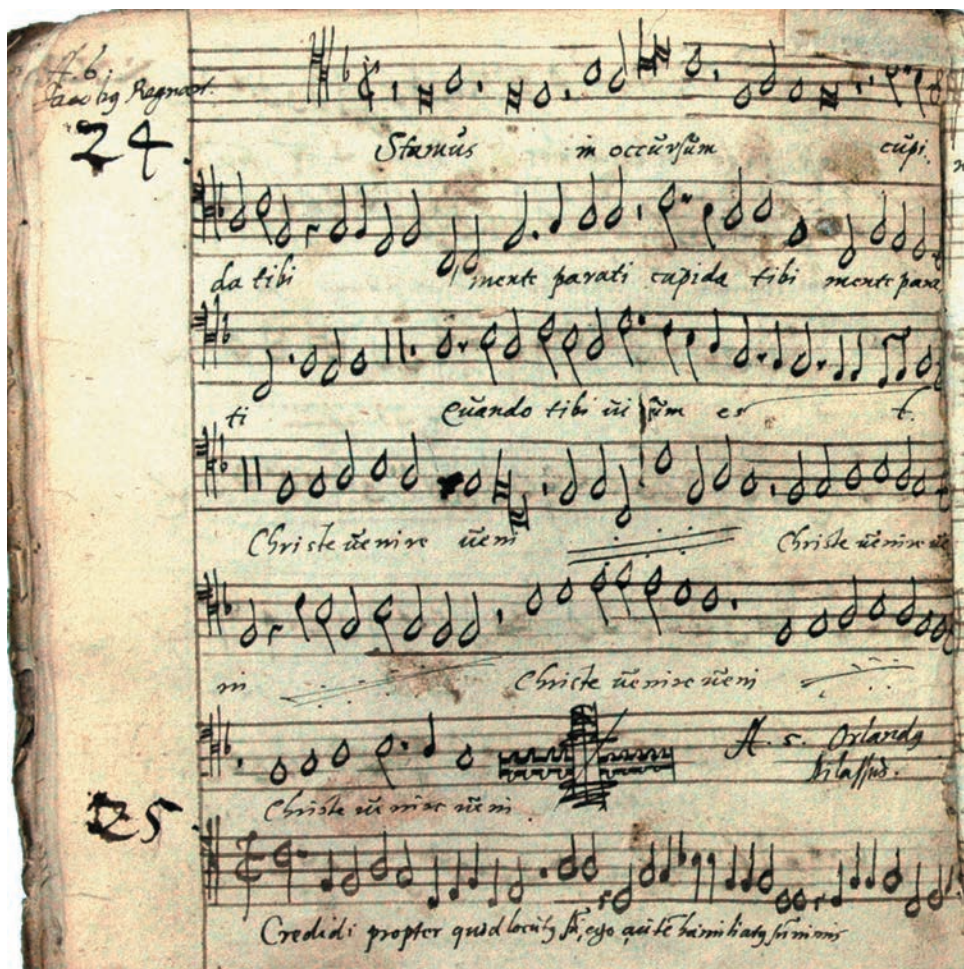 A. 6.
Jacobg Regnart.
24.
Stamus in occursum cupi,
da tibi mente parati cupida tibi mente para,
ti Quando tibi ui sum es t.
Christe uenire ueni Christe uenire ue
ni Christe uenire ueni
A. 5. Orlandg
dilassus.
Christe uenire ueni
25.
Credidi propter quod locutg sū, ego autē humiliatg sū nimis